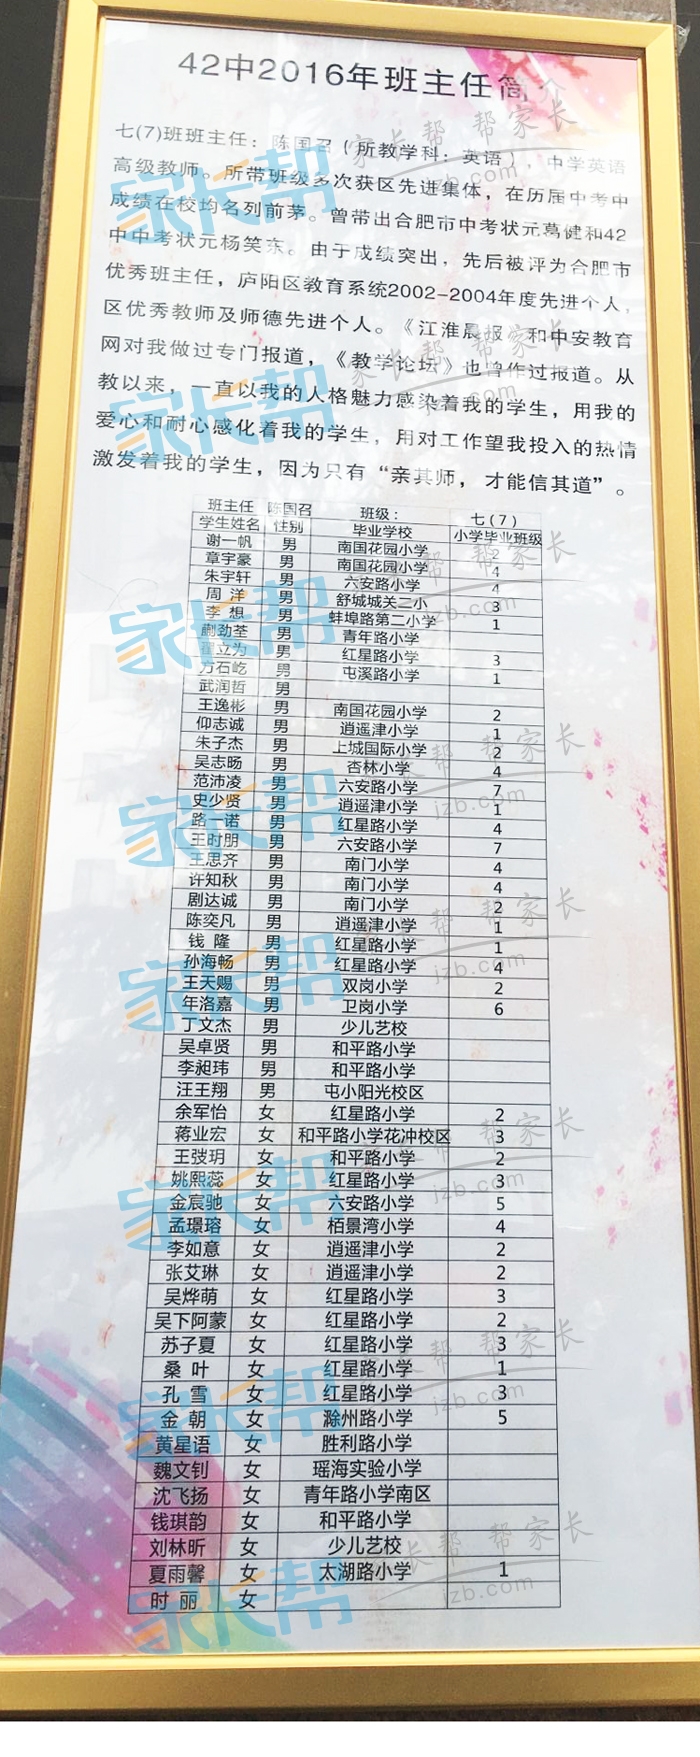 42中2016年班主任简介
七(7)班班主任：陈国召（所教学科：英语），中学英语
高级教师。所带班级多次获区先进集体，在历届中考中
成绩在校均名列前茅。曾带出合肥市中考状元葛健和42
中中考状元杨笑东。由于成绩突出，先后被评为合肥市
优秀班主任，庐阳区教育系统2002-2004年度先进个人，
区优秀教师及师德先进个人。《江淮晨报》和中安教育
网对我做过专门报道，《教学论坛》也曾作过报道。从
教以来，一直以我的人格魅力感染着我的学生，用我的
爱心和耐心感化着我的学生，用对工作望我投入的热情
激发着我的学生，因为只有“亲其师，才能信其道”。
班主任 陈国召 班级： 七(7)
学生姓名 性别 毕业学校 小学毕业班级
谢一帆 男 南国花园小学 2
章宇豪 男 南国花园小学 4
朱宇轩 男 六安路小学 4
周 洋 男 舒城城关二小 3
李 想 男 蚌埠路第二小学 1
蒯劲荃 男 青年路小学
翟立为 男 红星路小学 3
方石屹 男 屯溪路小学 1
武润哲 男
王逸彬 男 南国花园小学 2
仰志诚 男 逍遥津小学 1
朱子杰 男 上城国际小学 2
吴志旸 男 杏林小学 4
范沛凌 男 六安路小学 7
史少贤 男 逍遥津小学 1
路一诺 男 红星路小学 4
王时朋 男 六安路小学 7
王思齐 男 南门小学 4
许知秋 男 南门小学 4
剧达诚 男 南门小学 2
陈奕凡 男 逍遥津小学 1
钱 隆 男 红星路小学 1
孙海畅 男 红星路小学 4
王天赐 男 双岗小学 2
年洛嘉 男 卫岗小学 6
丁文杰 男 少儿艺校
吴卓贤 男 和平路小学
李昶玮 男 和平路小学
汪王翔 男 屯小阳光校区
余军怡 女 红星路小学 2
蒋业宏 女 和平路小学花冲校区 3
王弢玥 女 和平路小学 2
姚熙蕊 女 红星路小学 3
金宸驰 女 六安路小学 5
孟璟瑢 女 栢景湾小学 4
李如意 女 逍遥津小学 2
张艾琳 女 逍遥津小学 2
吴烨萌 女 红星路小学 3
吴下阿蒙 女 红星路小学 2
苏子夏 女 红星路小学 3
桑 叶 女 红星路小学 1
孔 雪 女 红星路小学 3
金 朝 女 滁州路小学 5
黄星语 女 胜利路小学
魏文钊 女 瑶海实验小学
沈飞扬 女 青年路小学南区
钱琪韵 女 和平路小学
刘林昕 女 少儿艺校
夏雨馨 女 太湖路小学 1
时 丽 女
家长帮
jzb.com